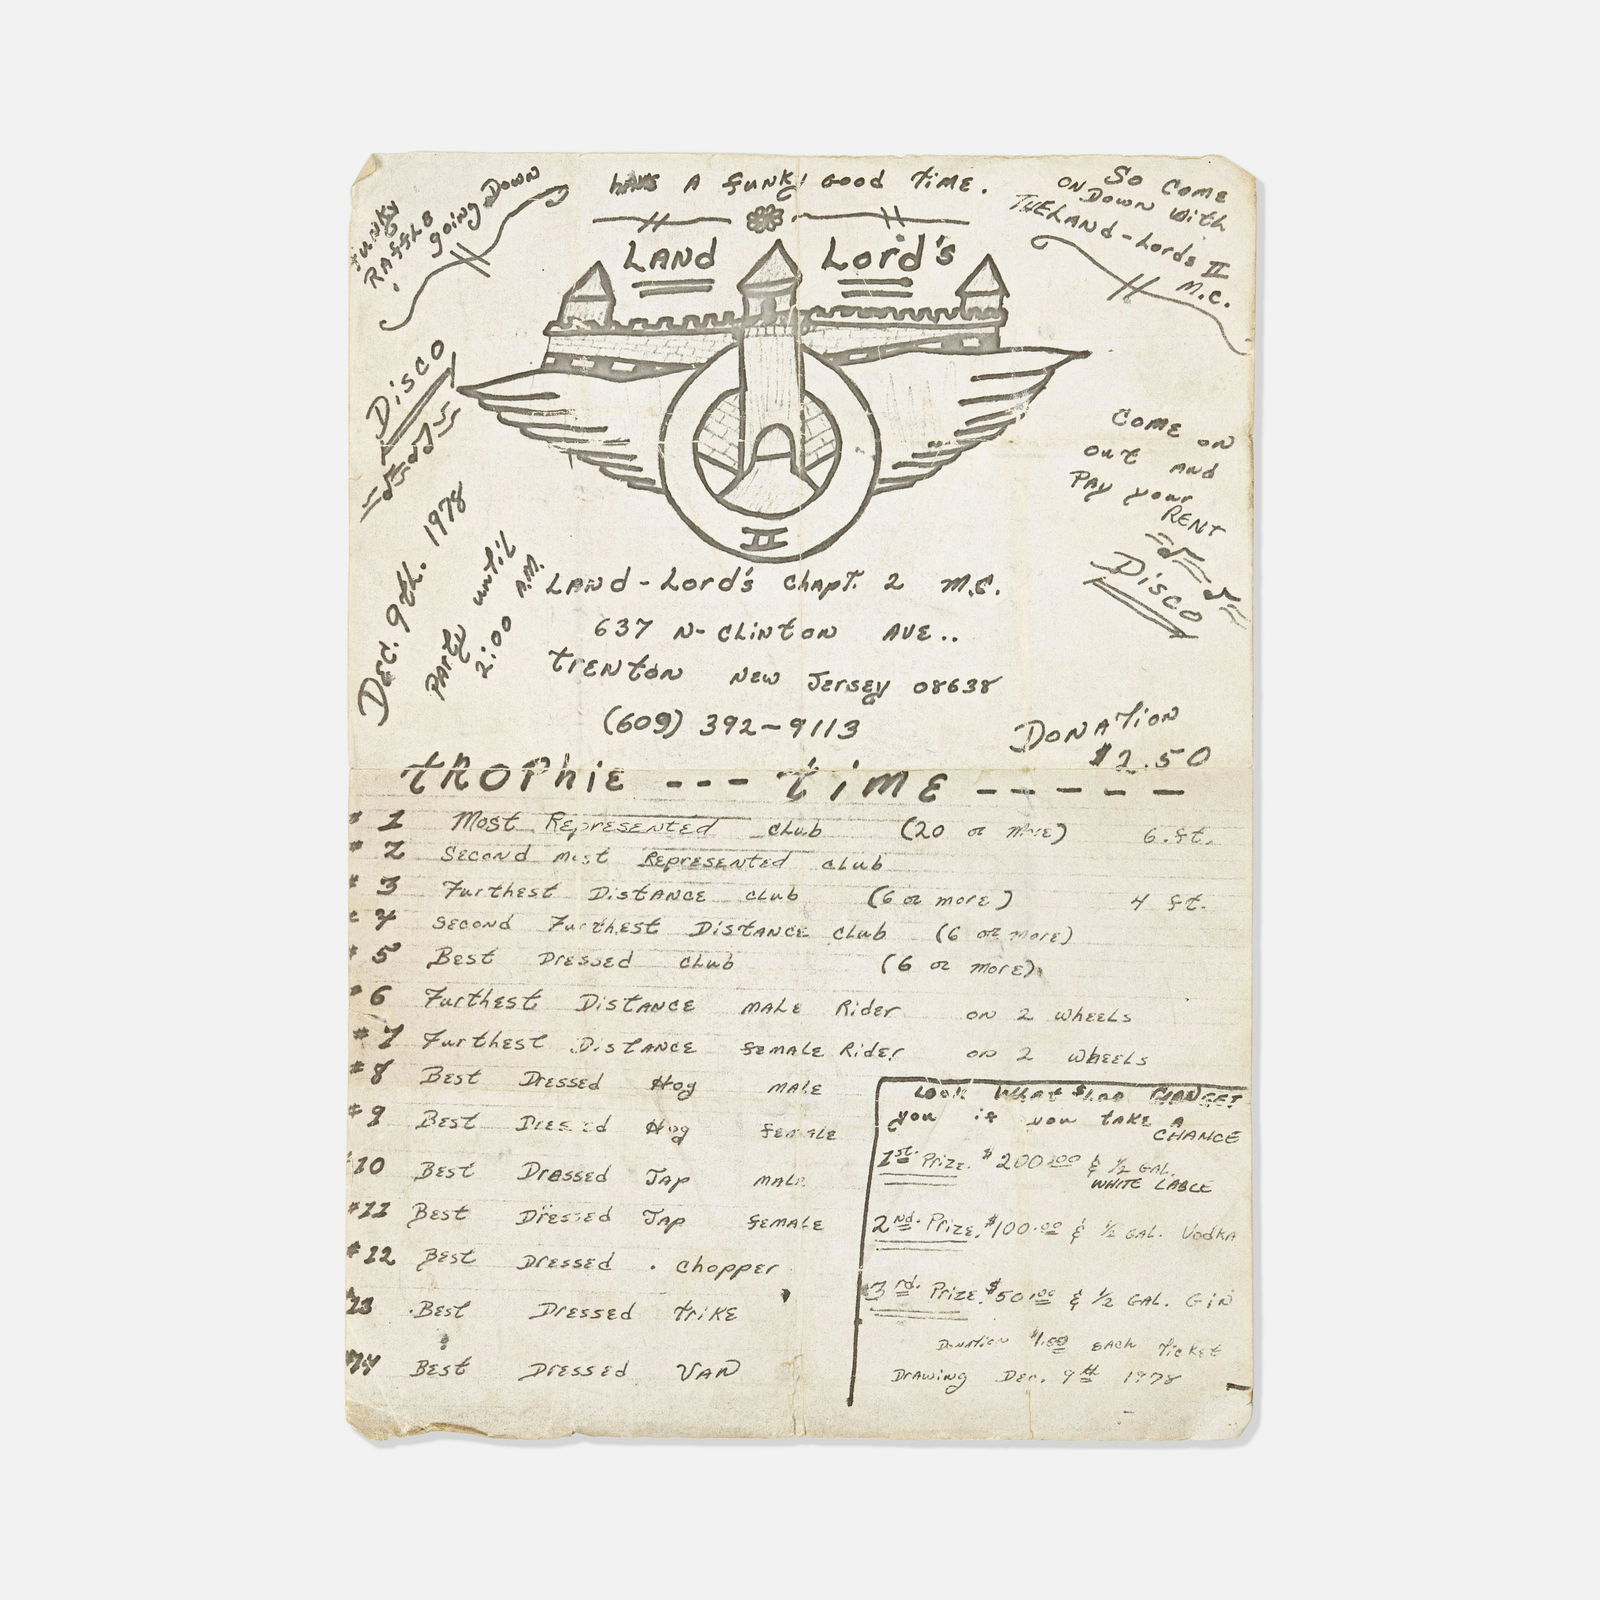 Funky
Raffle
going Down
have A funky Good time.
So Come
ON Down With
THE LAND-Lords II
M.C.
LAND Lord's
Disco
Come on
out and
Pay your
RENT
Disco
II
Dec. 9th. 1978
Party until
2:00 A.M.
LAND-Lord's Chapt. 2 M.C.
637 N- CLINTON AVE..
TRENTON New Jersey 08638
(609) 392-9113
DONATION
$2.50
TROPhiE --- TiME -----
# 1 Most Represented club (20 or more) 6.ft.
# 2 Second most Represented club
# 3 Furthest Distance club (6 or more) 4 ft.
# 4 Second Furthest Distance club (6 or more)
# 5 Best Dressed club (6 or more)
# 6 Furthest Distance male Rider on 2 wheels
# 7 Furthest Distance female Rider on 2 wheels
# 8 Best Dressed Hog male
# 9 Best Dressed Hog female
#10 Best Dressed Jap male
#11 Best Dressed Jap female
#12 Best Dressed chopper
#13 Best Dressed trike
#14 Best Dressed VAN
Look What $1.00
you if you take A
CHANCE
1st. Prize. $200.00 & 1/2 GAL.
WHITE LABLE
2nd. Prize. $100.00 & 1/2 GAL. Vodka
3rd. Prize. $50.00 & 1/2 GAL. GiN
Donation $1.00 each Ticket
Drawing Dec. 9th 1978